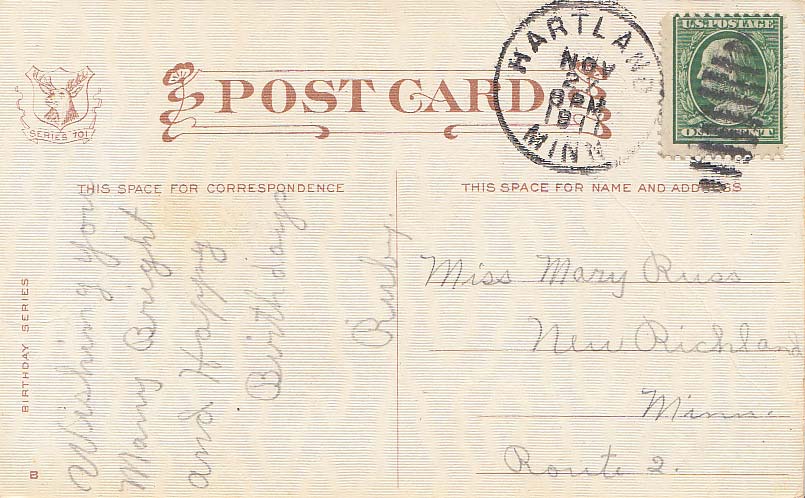 HARTLAND
NOV
6PM
1911
MINN
U.S. POSTAGE
ONE CENT
SERIES 101
POST CARD
THIS SPACE FOR CORRESPONDENCE
THIS SPACE FOR NAME AND ADDRESS
BIRTHDAY SERIES
B
Wishing you
Many Bright
and Happy
Birthdays
Ruby.
Miss Mary Russ
New Richland
Minn.
Route 2.